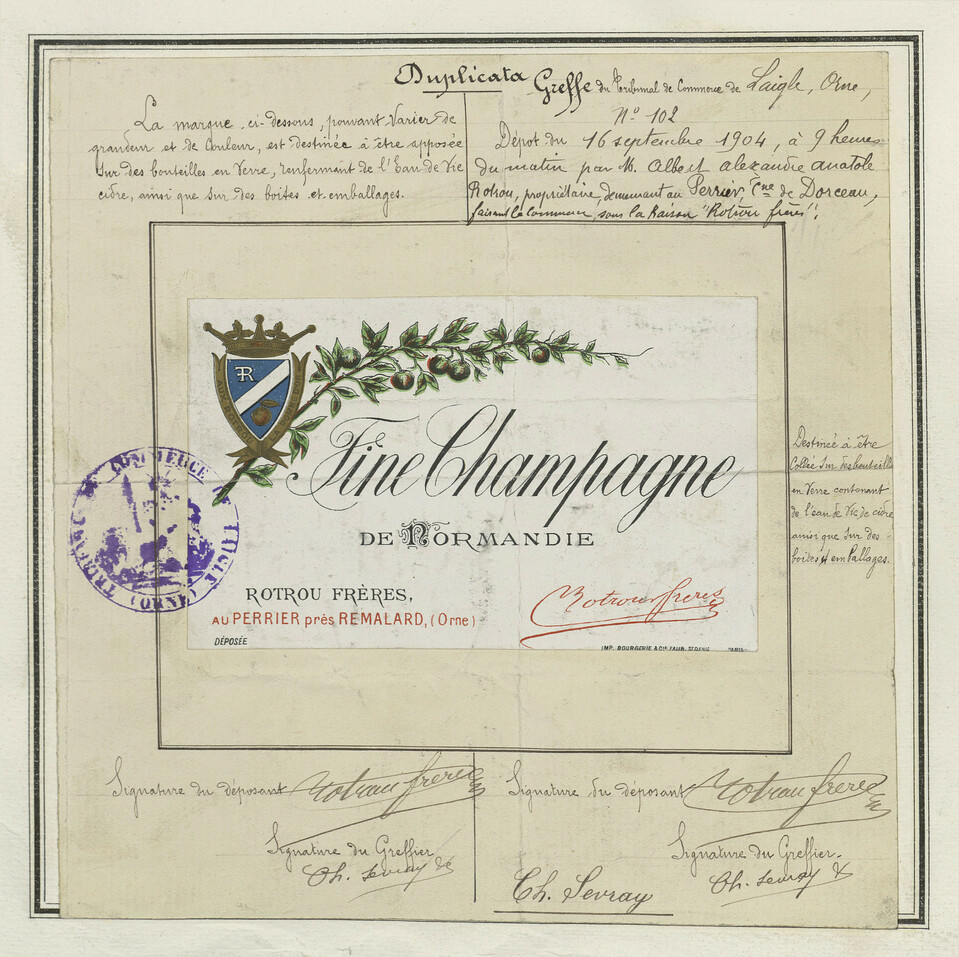 Duplicata
La marque ci-dessous, pouvant varier de
grandeur et de Couleur, est destinée à être apposée
sur des bouteilles en Verre, renfermant de l'Eau de Vie
cidre, ainsi que sur des boites et emballages.
Greffe du Tribunal de Commerce de Laigle, Orne,
No 102
Dépot du 16 septembre 1904, à 9 heures
du matin par M. Albert alexandre anatole
Rotrou, propriétaire, demeurant au Perrier, Cne de Dorceau,
faisant le commerce sous la Raison "Rotrou frères".
R
AUX ROTROU
Fine Champagne
DE NORMANDIE
ROTROU FRÈRES,
AU PERRIER près REMALARD, (Orne)
DÉPOSÉE
Rotrou freres
IMP. BOURGERIE & Cie FAUB. ST DENIS PARIS
TRIBUNAL DE COMMERCE DE L'AIGLE (ORNE)
Destinée à être
Collée sur des bouteilles
en Verre contenant
de l'eau de Vie de cidre
ainsi que sur des
boites et emballages.
Signature du déposant Rotrou freres
Signature du Greffier
Ch. Sevray
Signature du déposant Rotrou freres
Signature du Greffier.
Ch. Sevray
Ch. Sevray